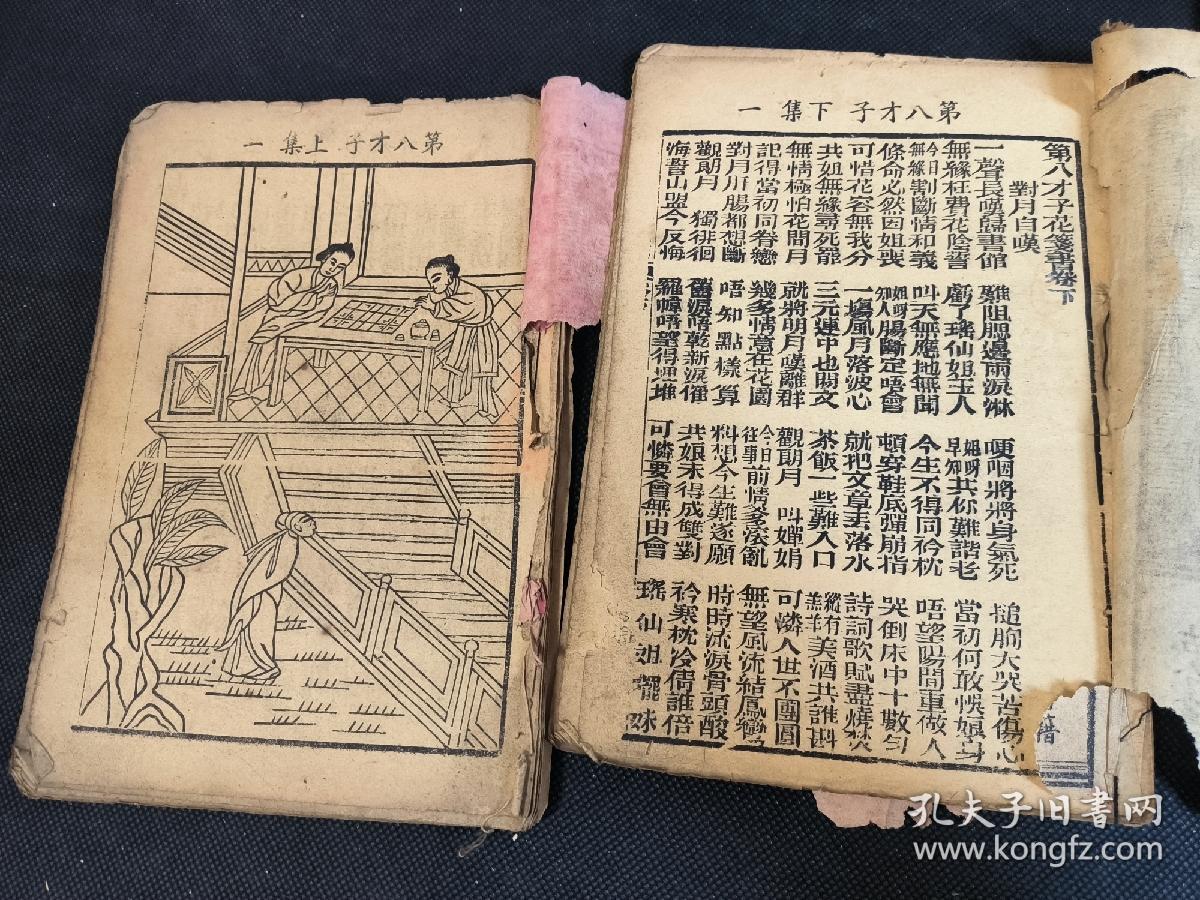 第八才子 上集 一
第八才子 下集 一
第八才子花箋書卷下
對月自嘆
一聲長嘆歸書館 難阻腮邊雨淚淋 哽咽將將身氣死 搥胸大哭苦傷心
無緣枉費花陰誓 虧了瑤仙姐玉人 姐呀早知共你難諧老 當初何敢悞娘身
今日無緣割斷情和義 叫天無應地無聞 今生不得同衿枕 唔望陽間重做人
條命必然因姐喪 腸斷定唔會 頓穿鞋底彈崩指 哭倒床中十數勻
可惜花容無我分 一塲風月落波心 就把文章丟落水 詩詞歌賦盡燒焚
共姐無緣尋死罷 三元連中也閑文 茶飯一些難入口 縱有美酒共誰斟
無情極怕花間月 就將明月嘆離群 觀期月 叫嬋娟 可憐人世不團圓
記得當初同眷戀 幾多情意在花園 今日往事前情多滾亂 無望風流結鳳鸞
對月肝腸都想斷 唔知點樣算 料想今生難遂願 時時流淚骨頭酸
觀期月 獨徘徊 舊淚唔乾新淚催 共娘未得成雙對 衿寒枕冷倩誰倍
海誓山盟今反悔 羅幃唔望得埋堆 可憐要會無由會 瑤仙姐 妹
孔夫子旧书网
www.kongfz.com